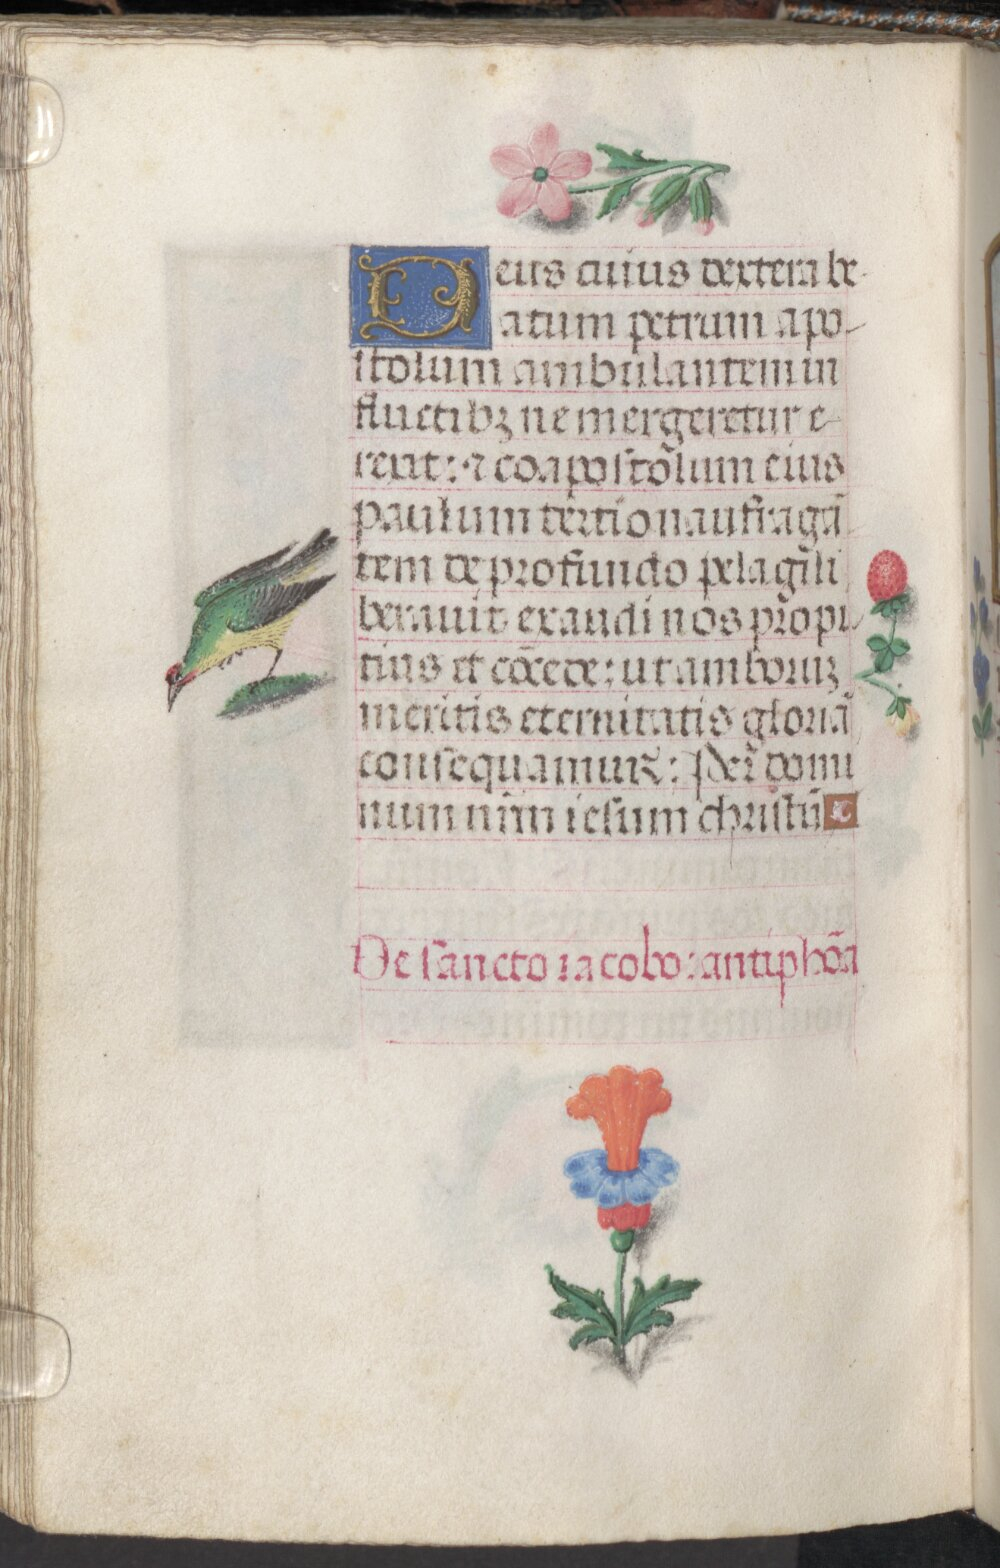 Deus cuius dextera be
atum petrum apo
stolum ambulantem in
fluctibꝫ ne mergeretur e
rexit: ⁊ coapostolum eius
paulum tertio naufragā
tem de profundo pelagi li
berauit exaudi nos propi
tius et cōcede: ut amboruꝫ
meritis eternitatis gloriā
consequamur: Per domi
num nr̄m iesum christū
De sancto iacobo: antiphōa